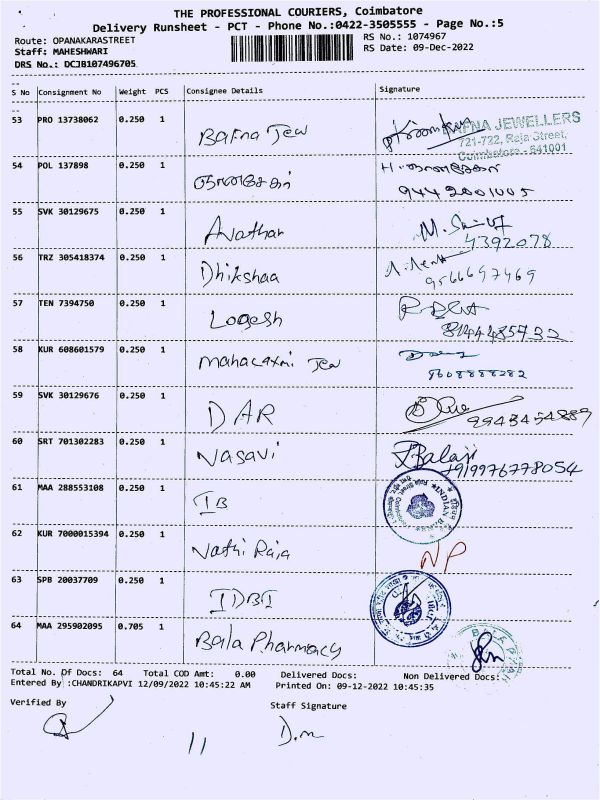 THE PROFESSIONAL COURIERS, Coimbatore
Delivery Runsheet - PCT - Phone No.:0422-3505555 - Page No.:5
Route: OPANAKARASTREET RS No.: 1074967
Staff: MAHESHWARI RS Date: 09-Dec-2022
DRS No.: DCJB107496705
S No Consignment No Weight PCS Consignee Details Signature
53 PRO 13738062 0.250 1 Bafna Jew
BAFNA JEWELLERS
721-722, Raja Street,
Coimbatore - 641001
54 POL 137898 0.250 1
9442001005
55 SVK 30129675 0.250 1
4392078
56 TRZ 305418374 0.250 1 Dhikshaa
9566697469
57 TEN 7394750 0.250 1 Logesh
8144485732
58 KUR 608601579 0.250 1 Mahalaxmi Jew
9608888282
59 SVK 30129676 0.250 1 DAR
9943454889
60 SRT 701302283 0.250 1 Vasavi Balaji
+919976778054
61 MAA 288553108 0.250 1 IB
INDIAN BANK
62 KUR 7000015394 0.250 1 Nathi Raja NP
63 SPB 20037709 0.250 1 IDBI
64 MAA 295902095 0.705 1 Bala Pharmacy
Total No. Of Docs: 64 Total COD Amt: 0.00 Delivered Docs: Non Delivered Docs:
Entered By :CHANDRIKAPVI 12/09/2022 10:45:22 AM Printed On: 09-12-2022 10:45:35
Verified By Staff Signature
D.m
11